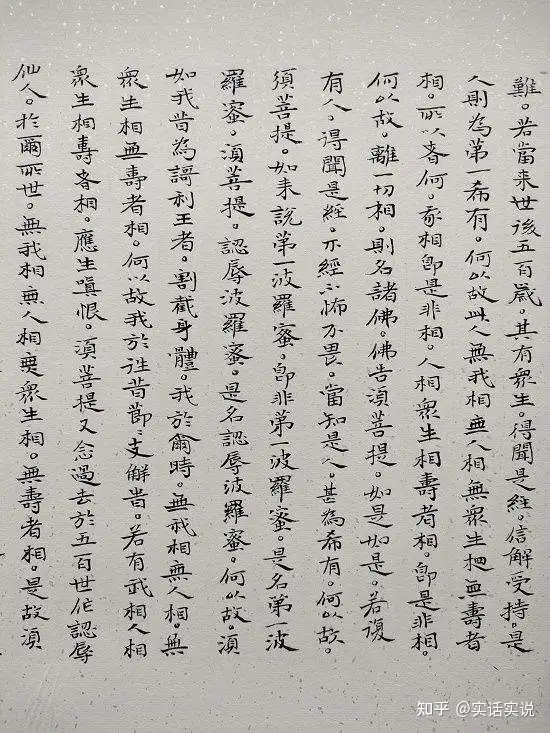 難。若當来世後五百歲。其有衆生。得聞是經。信解受持。是
人則為第一希有。何以故此人無我相無人相無衆生相無壽者
相。所以者何。我相即是非相。人相衆生相壽者相。即是非相。
何以故。離一切相。則名諸佛。佛告須菩提。如是如是。若復
有人。得聞是經。不經不怖不畏。當知是人。甚為希有。何以故。
須菩提。如来說第一波羅蜜。即非第一波羅蜜。是名第一波
羅蜜。須菩提。認辱波羅蜜。是名認辱波羅蜜。何以故。須
如我昔為謌利王者。割截身體。我於爾時。無我相無人相。無
衆生相無壽者相。何以故我於往昔節〻支解旹。若有我相人相
衆生相壽者相。應生嗔恨。須菩提又念過去於五百世作認辱
仙人。於爾所世。無我相無人相無衆生相。無壽者相。是故須
知乎 @实话实说